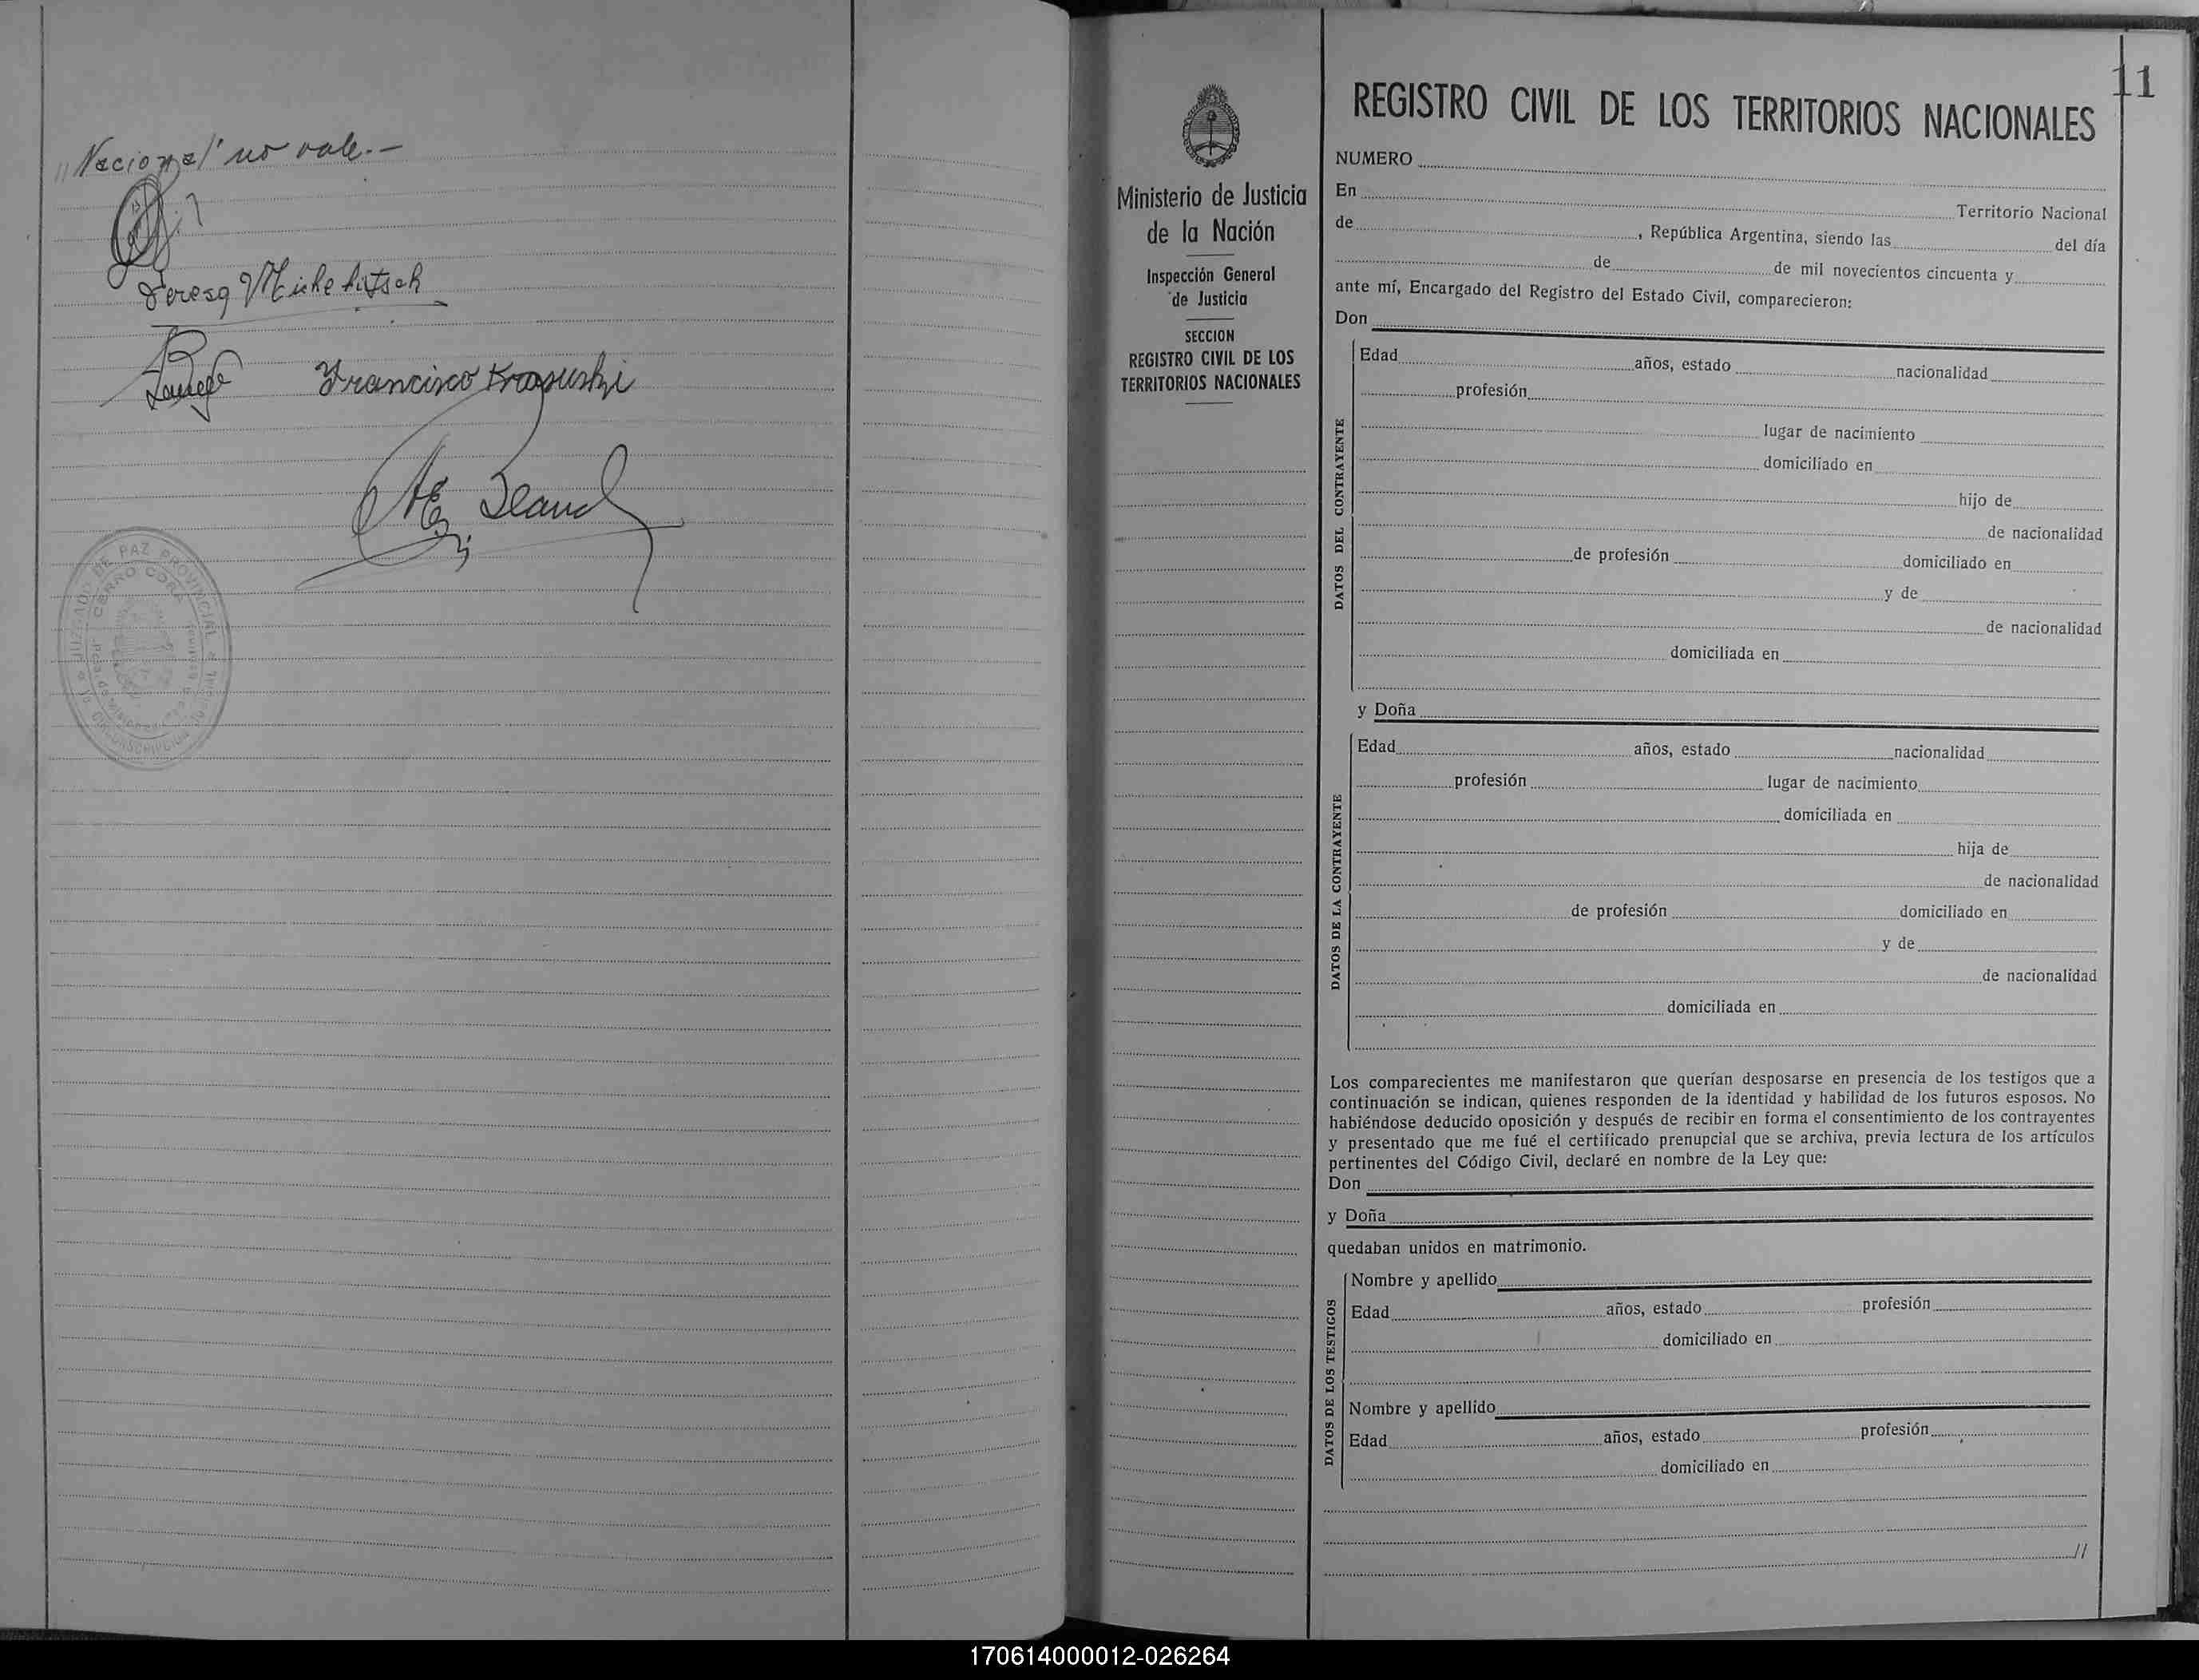 "Nacional" no vale.-
Teresa Michelitsch
Francisco Krasuski
JUZGADO DE PAZ PROVINCIAL
CERRO CORÁ
CIRCUNSCRIPCION
11
REGISTRO CIVIL DE LOS TERRITORIOS NACIONALES
Ministerio de Justicia
de la Nación
Inspección General
de Justicia
SECCION
REGISTRO CIVIL DE LOS
TERRITORIOS NACIONALES
NUMERO
En Territorio Nacional
de , República Argentina, siendo las del día
de de mil novecientos cincuenta y
ante mí, Encargado del Registro del Estado Civil, comparecieron:
Don
DATOS DEL CONTRAYENTE
Edad años, estado nacionalidad
profesión
lugar de nacimiento
domiciliado en
hijo de
de nacionalidad
de profesión domiciliado en
y de
de nacionalidad
domiciliada en
y Doña
DATOS DE LA CONTRAYENTE
Edad años, estado nacionalidad
profesión lugar de nacimiento
domiciliada en
hija de
de nacionalidad
de profesión domiciliado en
y de
de nacionalidad
domiciliada en
Los comparecientes me manifestaron que querían desposarse en presencia de los testigos que a
continuación se indican, quienes responden de la identidad y habilidad de los futuros esposos. No
habiéndose deducido oposición y después de recibir en forma el consentimiento de los contrayentes
y presentado que me fué el certificado prenupcial que se archiva, previa lectura de los artículos
pertinentes del Código Civil, declaré en nombre de la Ley que:
Don
y Doña
quedaban unidos en matrimonio.
DATOS DE LOS TESTIGOS
Nombre y apellido
Edad años, estado profesión
domiciliado en
Nombre y apellido
Edad años, estado profesión
domiciliado en
//
170614000012-026264